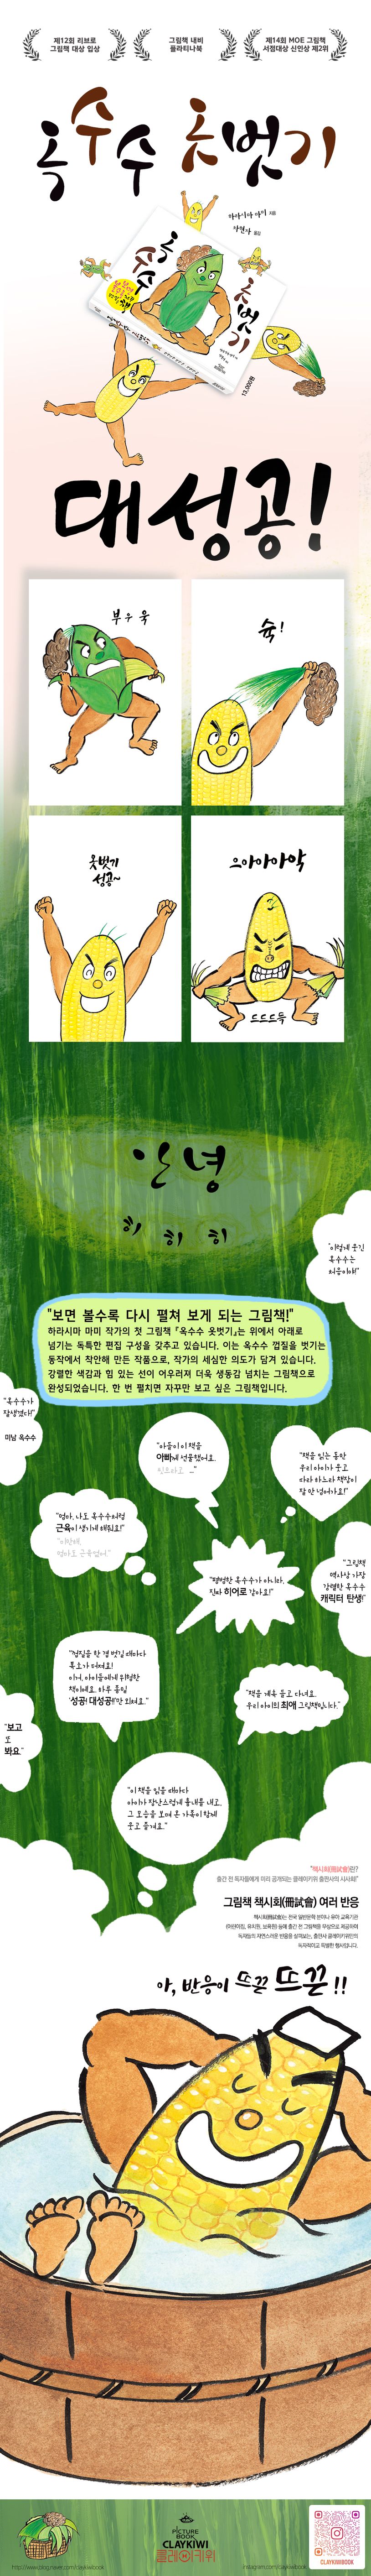 제12회 리브로
그림책 대상 입상
그림책 내비
플라티나북
제14회 MOE 그림책
서점대상 신인상 제2위
옥수수 옷벗기
옥수수 옷벗기
13,000원
대성공!
부우욱
슉!
옷벗기
성공~
으아아아악
드드드득
안녕
히 히 히
"이렇게 웃긴
옥수수는
처음이야!"
"보면 볼수록 다시 펼쳐 보게 되는 그림책!"
하라시마 마미 작가의 첫 그림책 『옥수수 옷벗기』는 위에서 아래로
넘기는 독특한 편집 구성을 갖추고 있습니다. 이는 옥수수 껍질을 벗기는
동작에서 착안해 만든 작품으로, 작가의 세심한 의도가 담겨 있습니다.
강렬한 색감과 힘 있는 선이 어우러져 더욱 생동감 넘치는 그림책으로
완성되었습니다. 한 번 펼치면 자꾸만 보고 싶은 그림책입니다.
"옥수수가
잘생겼다!"
미남 옥수수
"아들이 이 책을
아빠께 선물했어요.
"책을 읽는 동안
우리 아이가 웃고
따라 하느라 책장이
잘 안 넘어가요!"
"엄마, 나도 옥수수처럼
근육이 생기게 해줘요!"
"미안해,
엄마도 근육 없어."
"평범한 옥수수가 아니라,
진짜 히어로 같아요!"
"그림책
역사상 가장
강렬한 옥수수
캐릭터 탄생!"
"껍질을 한 겹 벗길 때마다
폭소가 터져요!
이거, 아이들에게 위험한
책이네요. 하루 종일
'성공! 대성공!'만 외쳐요."
"책을 계속 들고 다녀요.
우리 아이의 최애 그림책입니다."
"보고
또
봐요."
"이 책을 읽을 때마다
아이가 장난스럽게 흉내를 내고,
그 모습을 보며 온 가족이 함께
웃고 즐겨요."
"책시회(冊試會)란?
출간 전 독자들에게 미리 공개되는 클레이키위 출판사의 시사회"
그림책 책시회(冊試會) 여러 반응
책시회(冊試會)는 전국 일반문학 분야나 유아 교육기관
(어린이집, 유치원, 보육원) 등에 출간 전 그림책을 무상으로 제공하여
독자들의 자연스러운 반응을 살펴보는, 출판사 클레이키위만의
독자적이고 특별한 행사입니다.
아, 반응이 뜨끈 뜨끈!!
PICTURE
BOOK
CLAYKIWI
클레이키위
http://www.blog.naver.com/claykiwibook
instagram.com/claykiwibook
CLAYKIWIBOOK